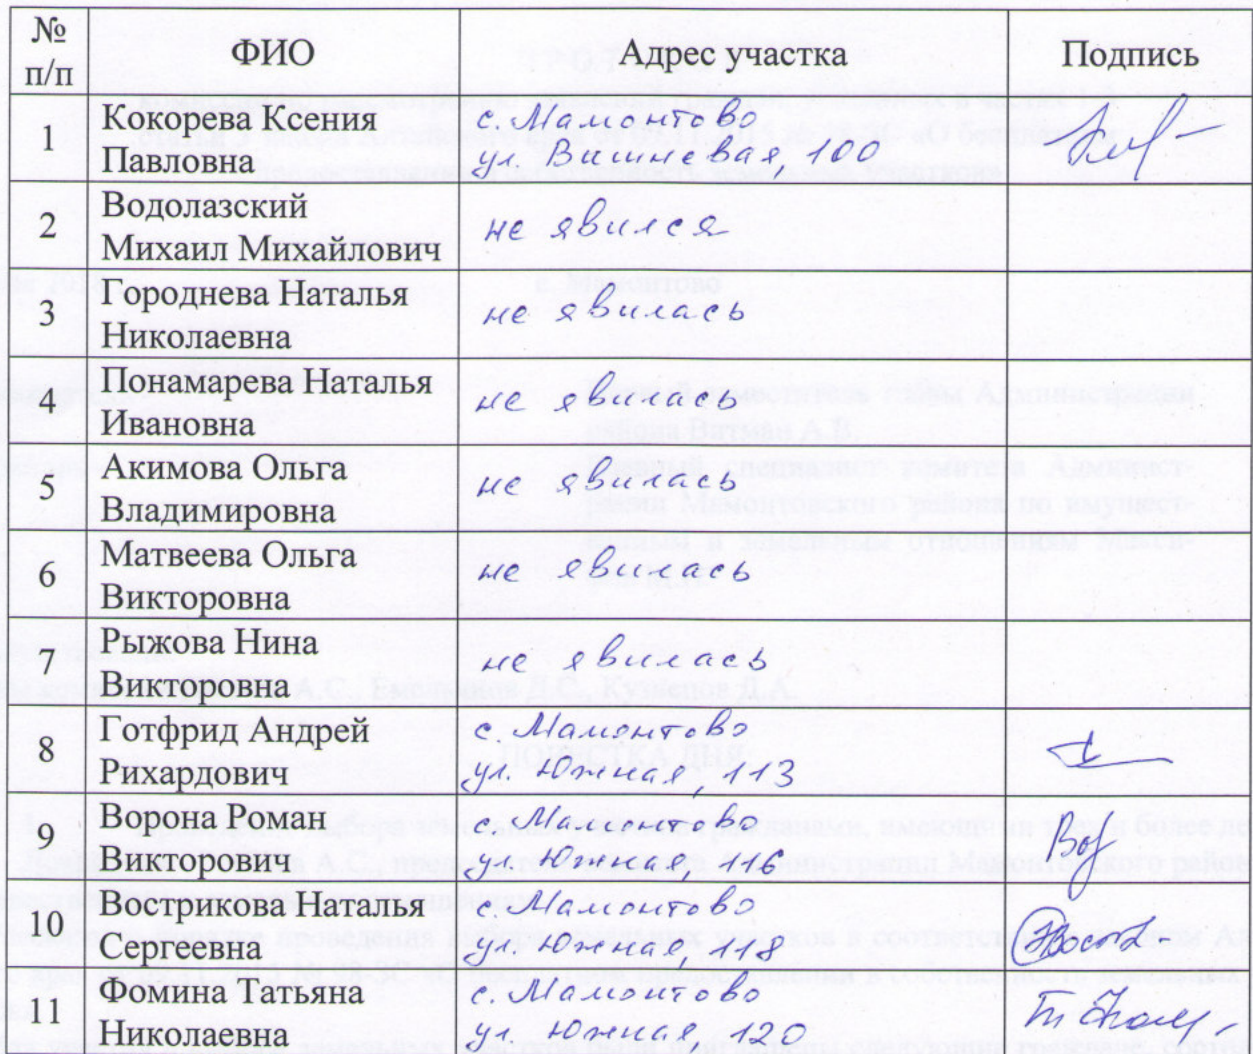 №
п/п
ФИО
Адрес участка
Подпись
1
Кокорева Ксения
Павловна
с. Мамонтово
ул. Вишневая, 100
2
Водолазский
Михаил Михайлович
не явился
3
Городнева Наталья
Николаевна
не явилась
4
Понамарева Наталья
Ивановна
не явилась
5
Акимова Ольга
Владимировна
не явилась
6
Матвеева Ольга
Викторовна
не явилась
7
Рыжова Нина
Викторовна
не явилась
8
Готфрид Андрей
Рихардович
с. Мамонтово
ул. Южная, 113
9
Ворона Роман
Викторович
с. Мамонтово
ул. Южная, 116
10
Вострикова Наталья
Сергеевна
с. Мамонтово
ул. Южная, 118
11
Фомина Татьяна
Николаевна
с. Мамонтово
ул. Южная, 120